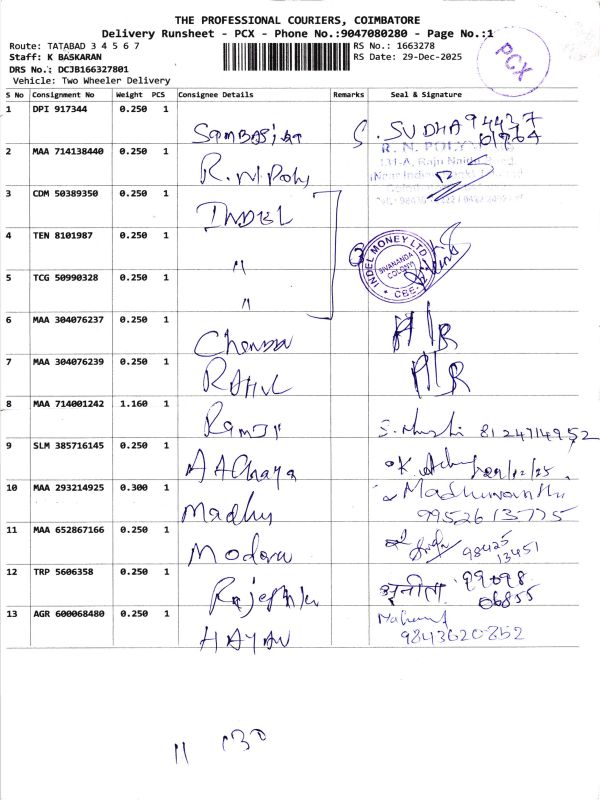 THE PROFESSIONAL COURIERS, COIMBATORE
Delivery Runsheet - PCX - Phone No.:9047080280 - Page No.:1
Route: TATABAD 3 4 5 6 7
RS No.: 1663278
Staff: K BASKARAN
RS Date: 29-Dec-2025
DRS No.: DCJB166327801
Vehicle: Two Wheeler Delivery
PCX
S No Consignment No Weight PCS Consignee Details Remarks Seal & Signature
1 DPI 917344 0.250 1 S. SUDHA 94437
2 MAA 714138440 0.250 1 R.N. Poly R. N. POLY
131-A, Raju Naidu
3 CDM 50389350 0.250 1 INDEL
4 TEN 8101987 0.250 1 " INDEL MONEY LTD SIVANANDA COLONY CBE
5 TCG 50990328 0.250 1 "
6 MAA 304076237 0.250 1 A/R
7 MAA 304076239 0.250 1 RAHUL A/R
8 MAA 714001242 1.160 1 Ramji 8124714952
9 SLM 385716145 0.250 1 29/12/25
10 MAA 293214925 0.300 1 Madhu Madhuvanthi
9952613775
11 MAA 652867166 0.250 1 98425
13451
12 TRP 5606358 0.250 1 अनीता 99098
06855
13 AGR 600068480 0.250 1
9843620852
11